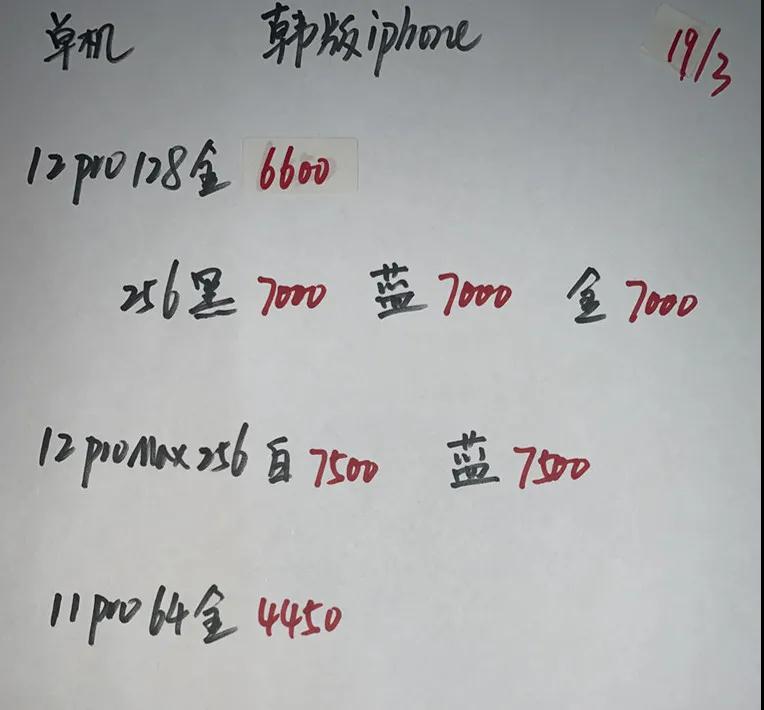 单机 韩版iphone 19/3
12pro128金 6600
256黑 7000 蓝 7000 金 7000
12proMax256白 7500 蓝 7500
11pro64金 4450